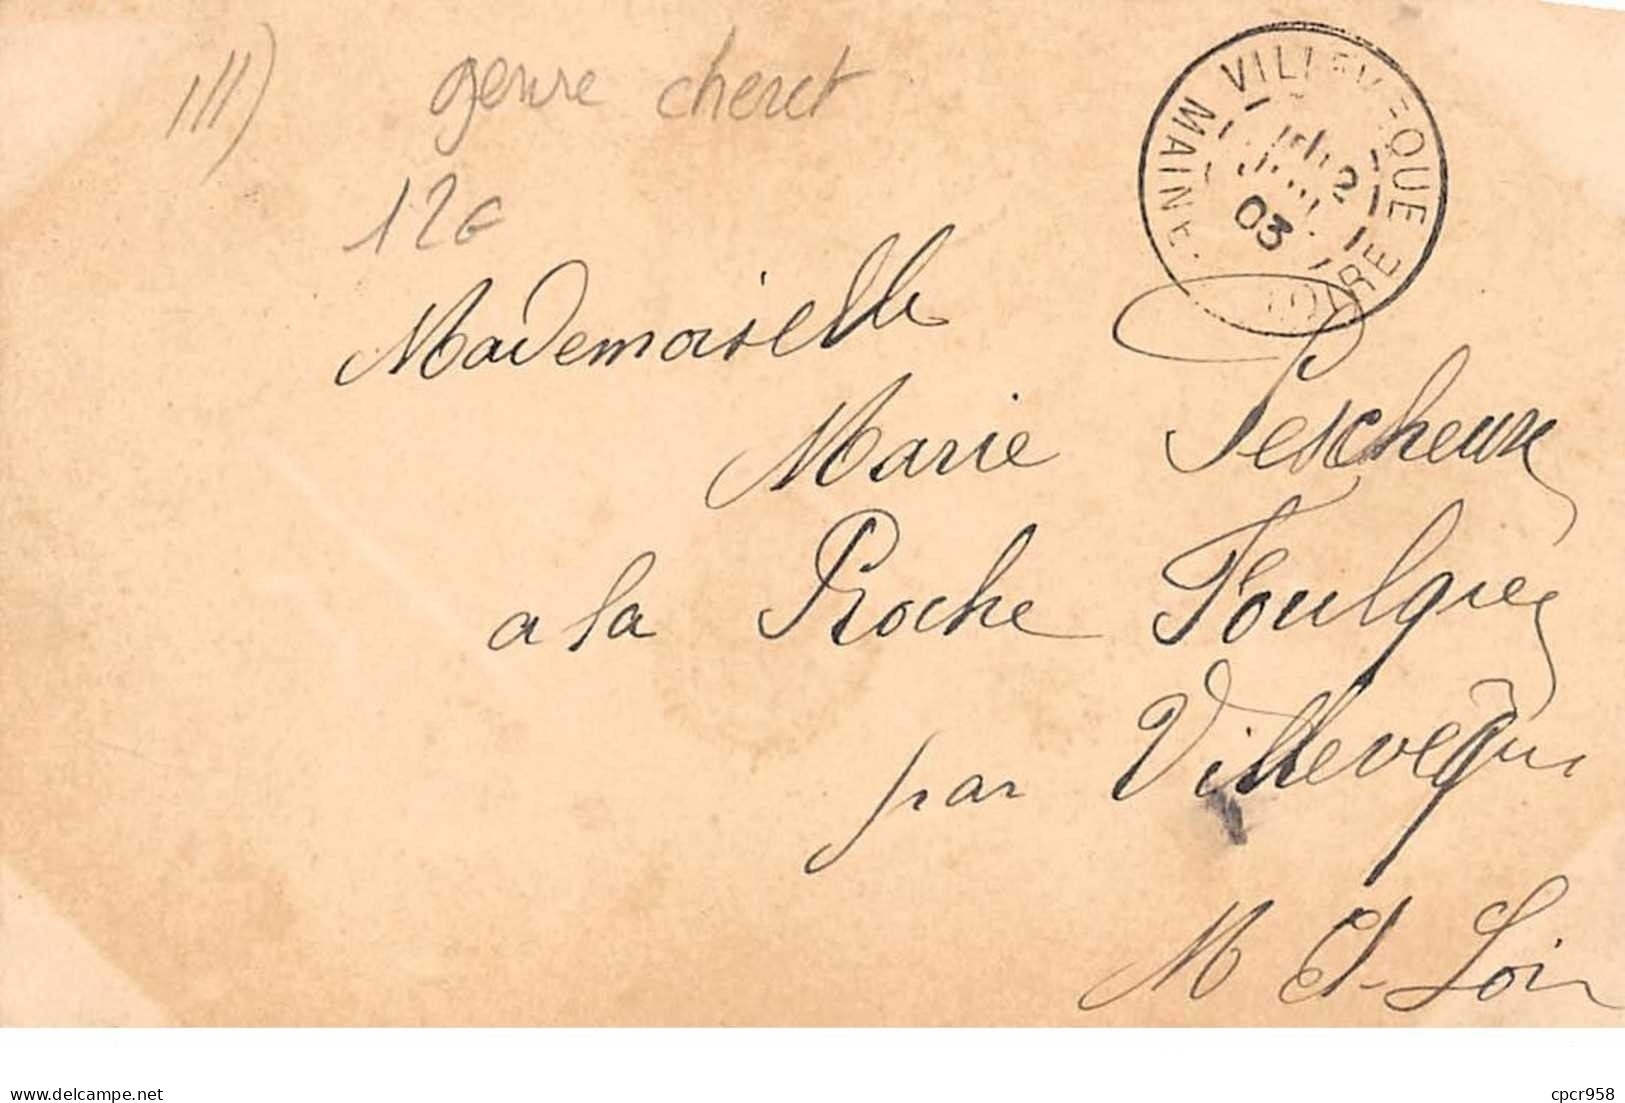 ill) genre cheret
12€
VILLEVEQUE
MAINE LOIRE
2
03
Mademoiselle
Marie Pescheux
a la Roche Foulques
par Villevêque
M et Loir
www.delcampe.net
cpcr958